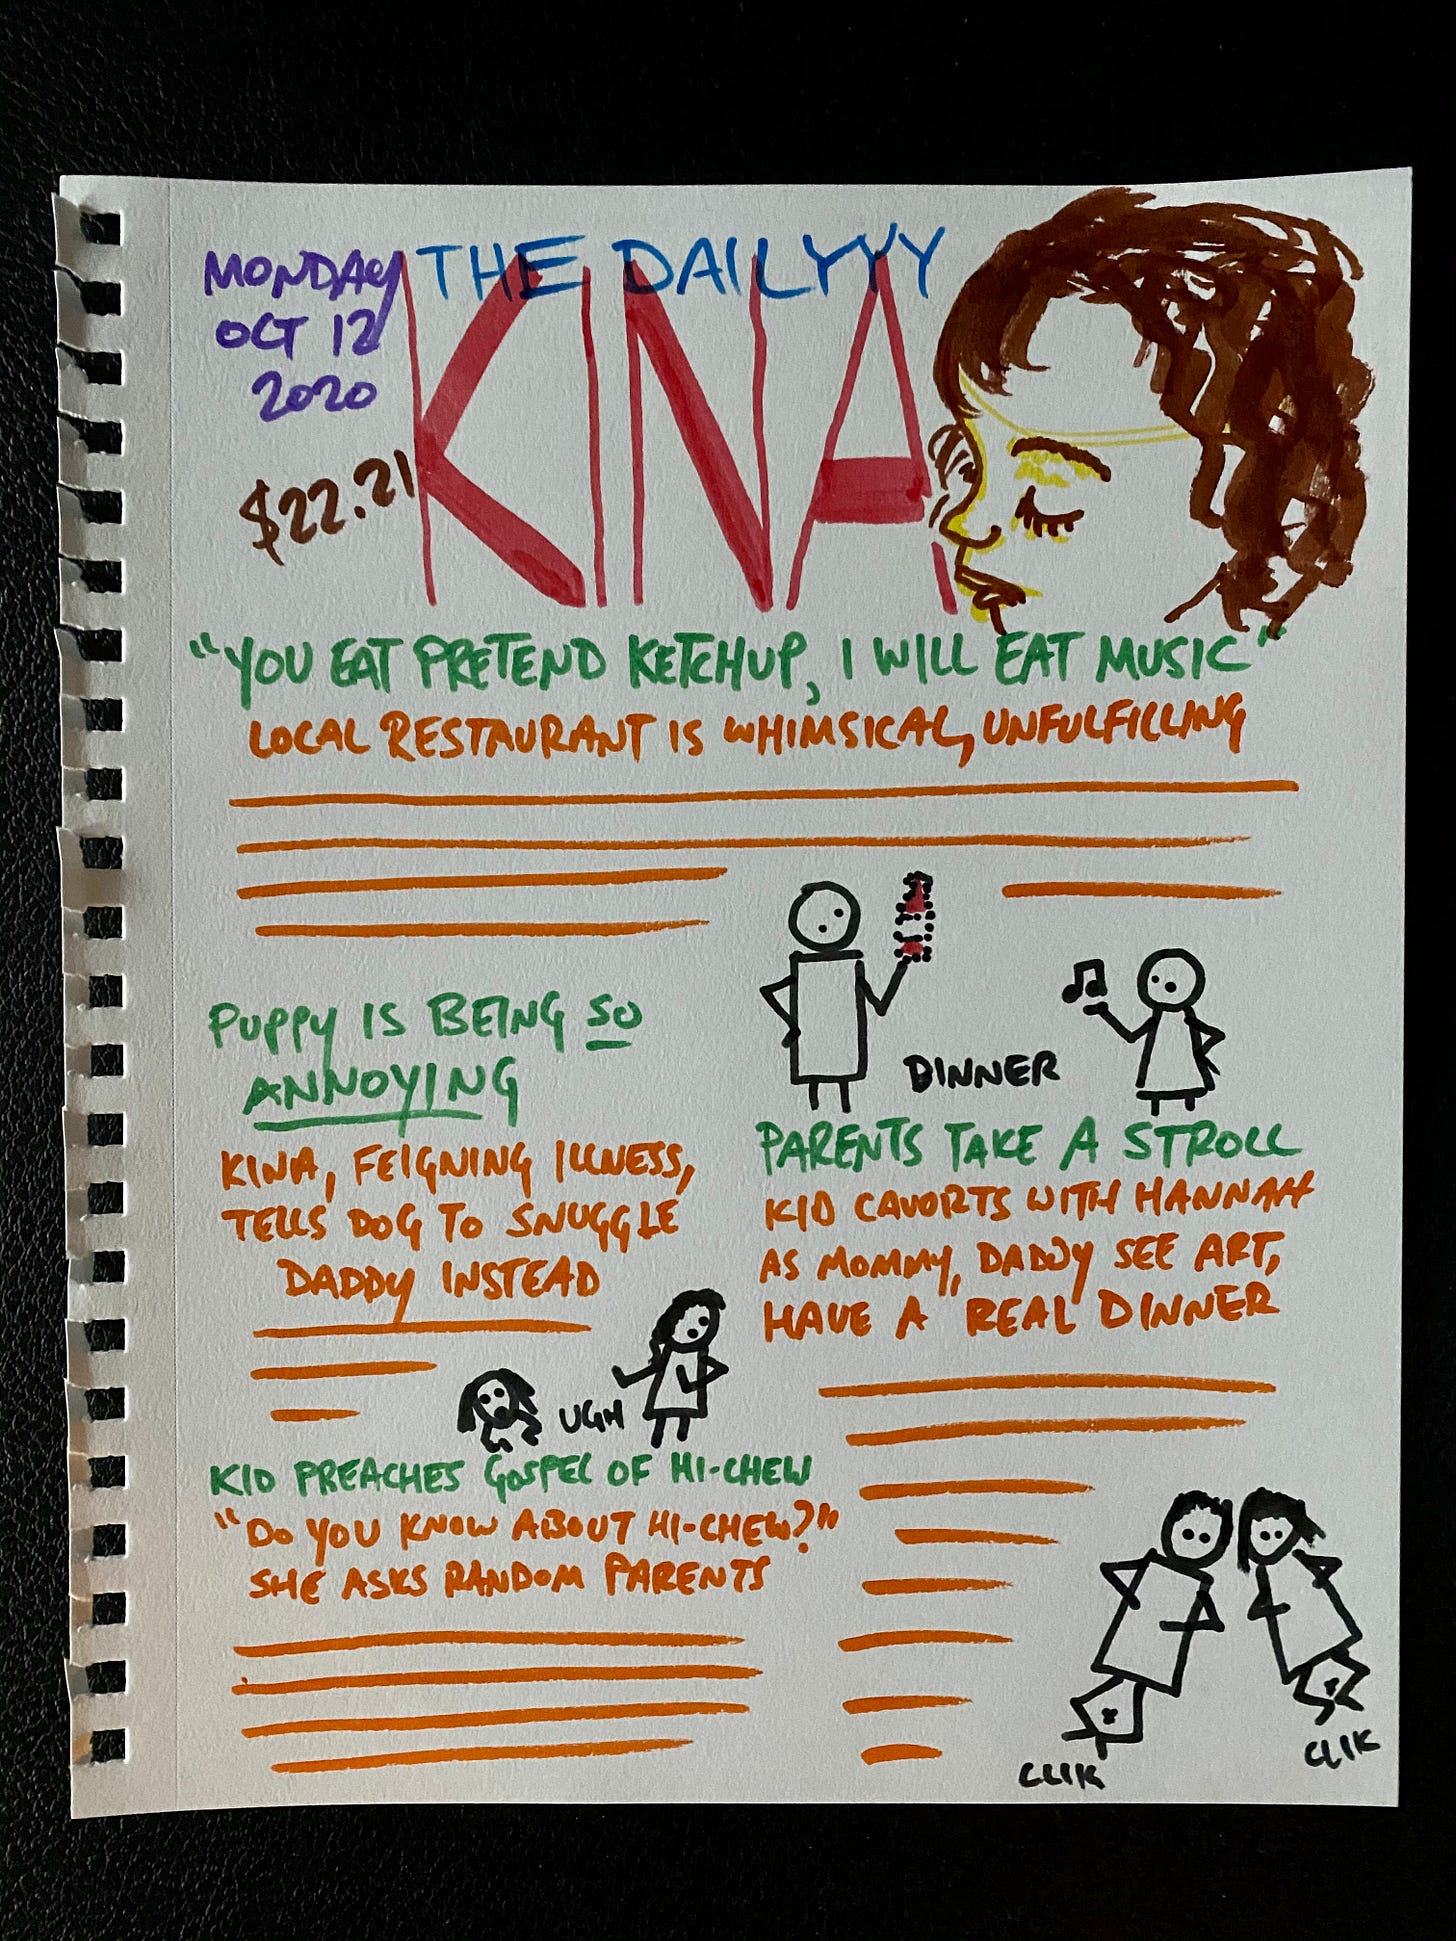 MONDAY
OCT 12
2020
$22.21
THE DAILYYY
KINA
"YOU EAT PRETEND KETCHUP, I WILL EAT MUSIC"
LOCAL RESTAURANT IS WHIMSICAL, UNFULFILLING
DINNER
PUPPY IS BEING SO
ANNOYING
KINA, FEIGNING ILLNESS,
TELLS DOG TO SNUGGLE
DADDY INSTEAD
UGH
PARENTS TAKE A STROLL
KID CAVORTS WITH HANNAH
AS MOMMY, DADDY SEE ART,
HAVE A "REAL" DINNER
KID PREACHES GOSPEL OF HI-CHEW
"DO YOU KNOW ABOUT HI-CHEW?"
SHE ASKS RANDOM PARENTS
CLIK
CLIK